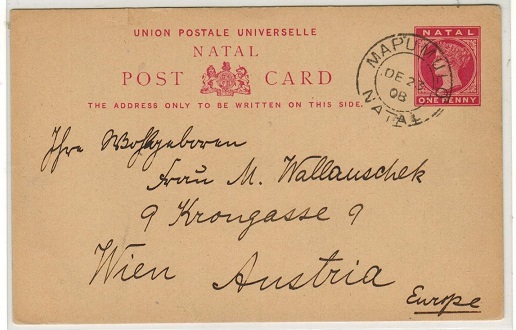 UNION POSTALE UNIVERSELLE
NATAL
POST CARD
THE ADDRESS ONLY TO BE WRITTEN ON THIS SIDE.
NATAL
ONE PENNY
MAPUMULO
DE 23
08
NATAL
Ihre Wohlgeboren
Frau M. Wallauschek
9 Krongasse 9
Wien Austria
Europe